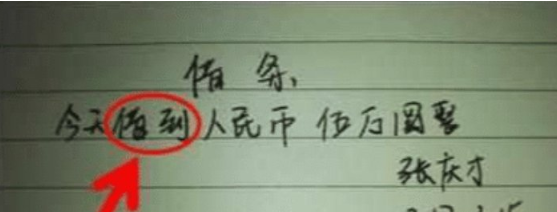 借条
今天借到人民币 伍万圆整
张庆才